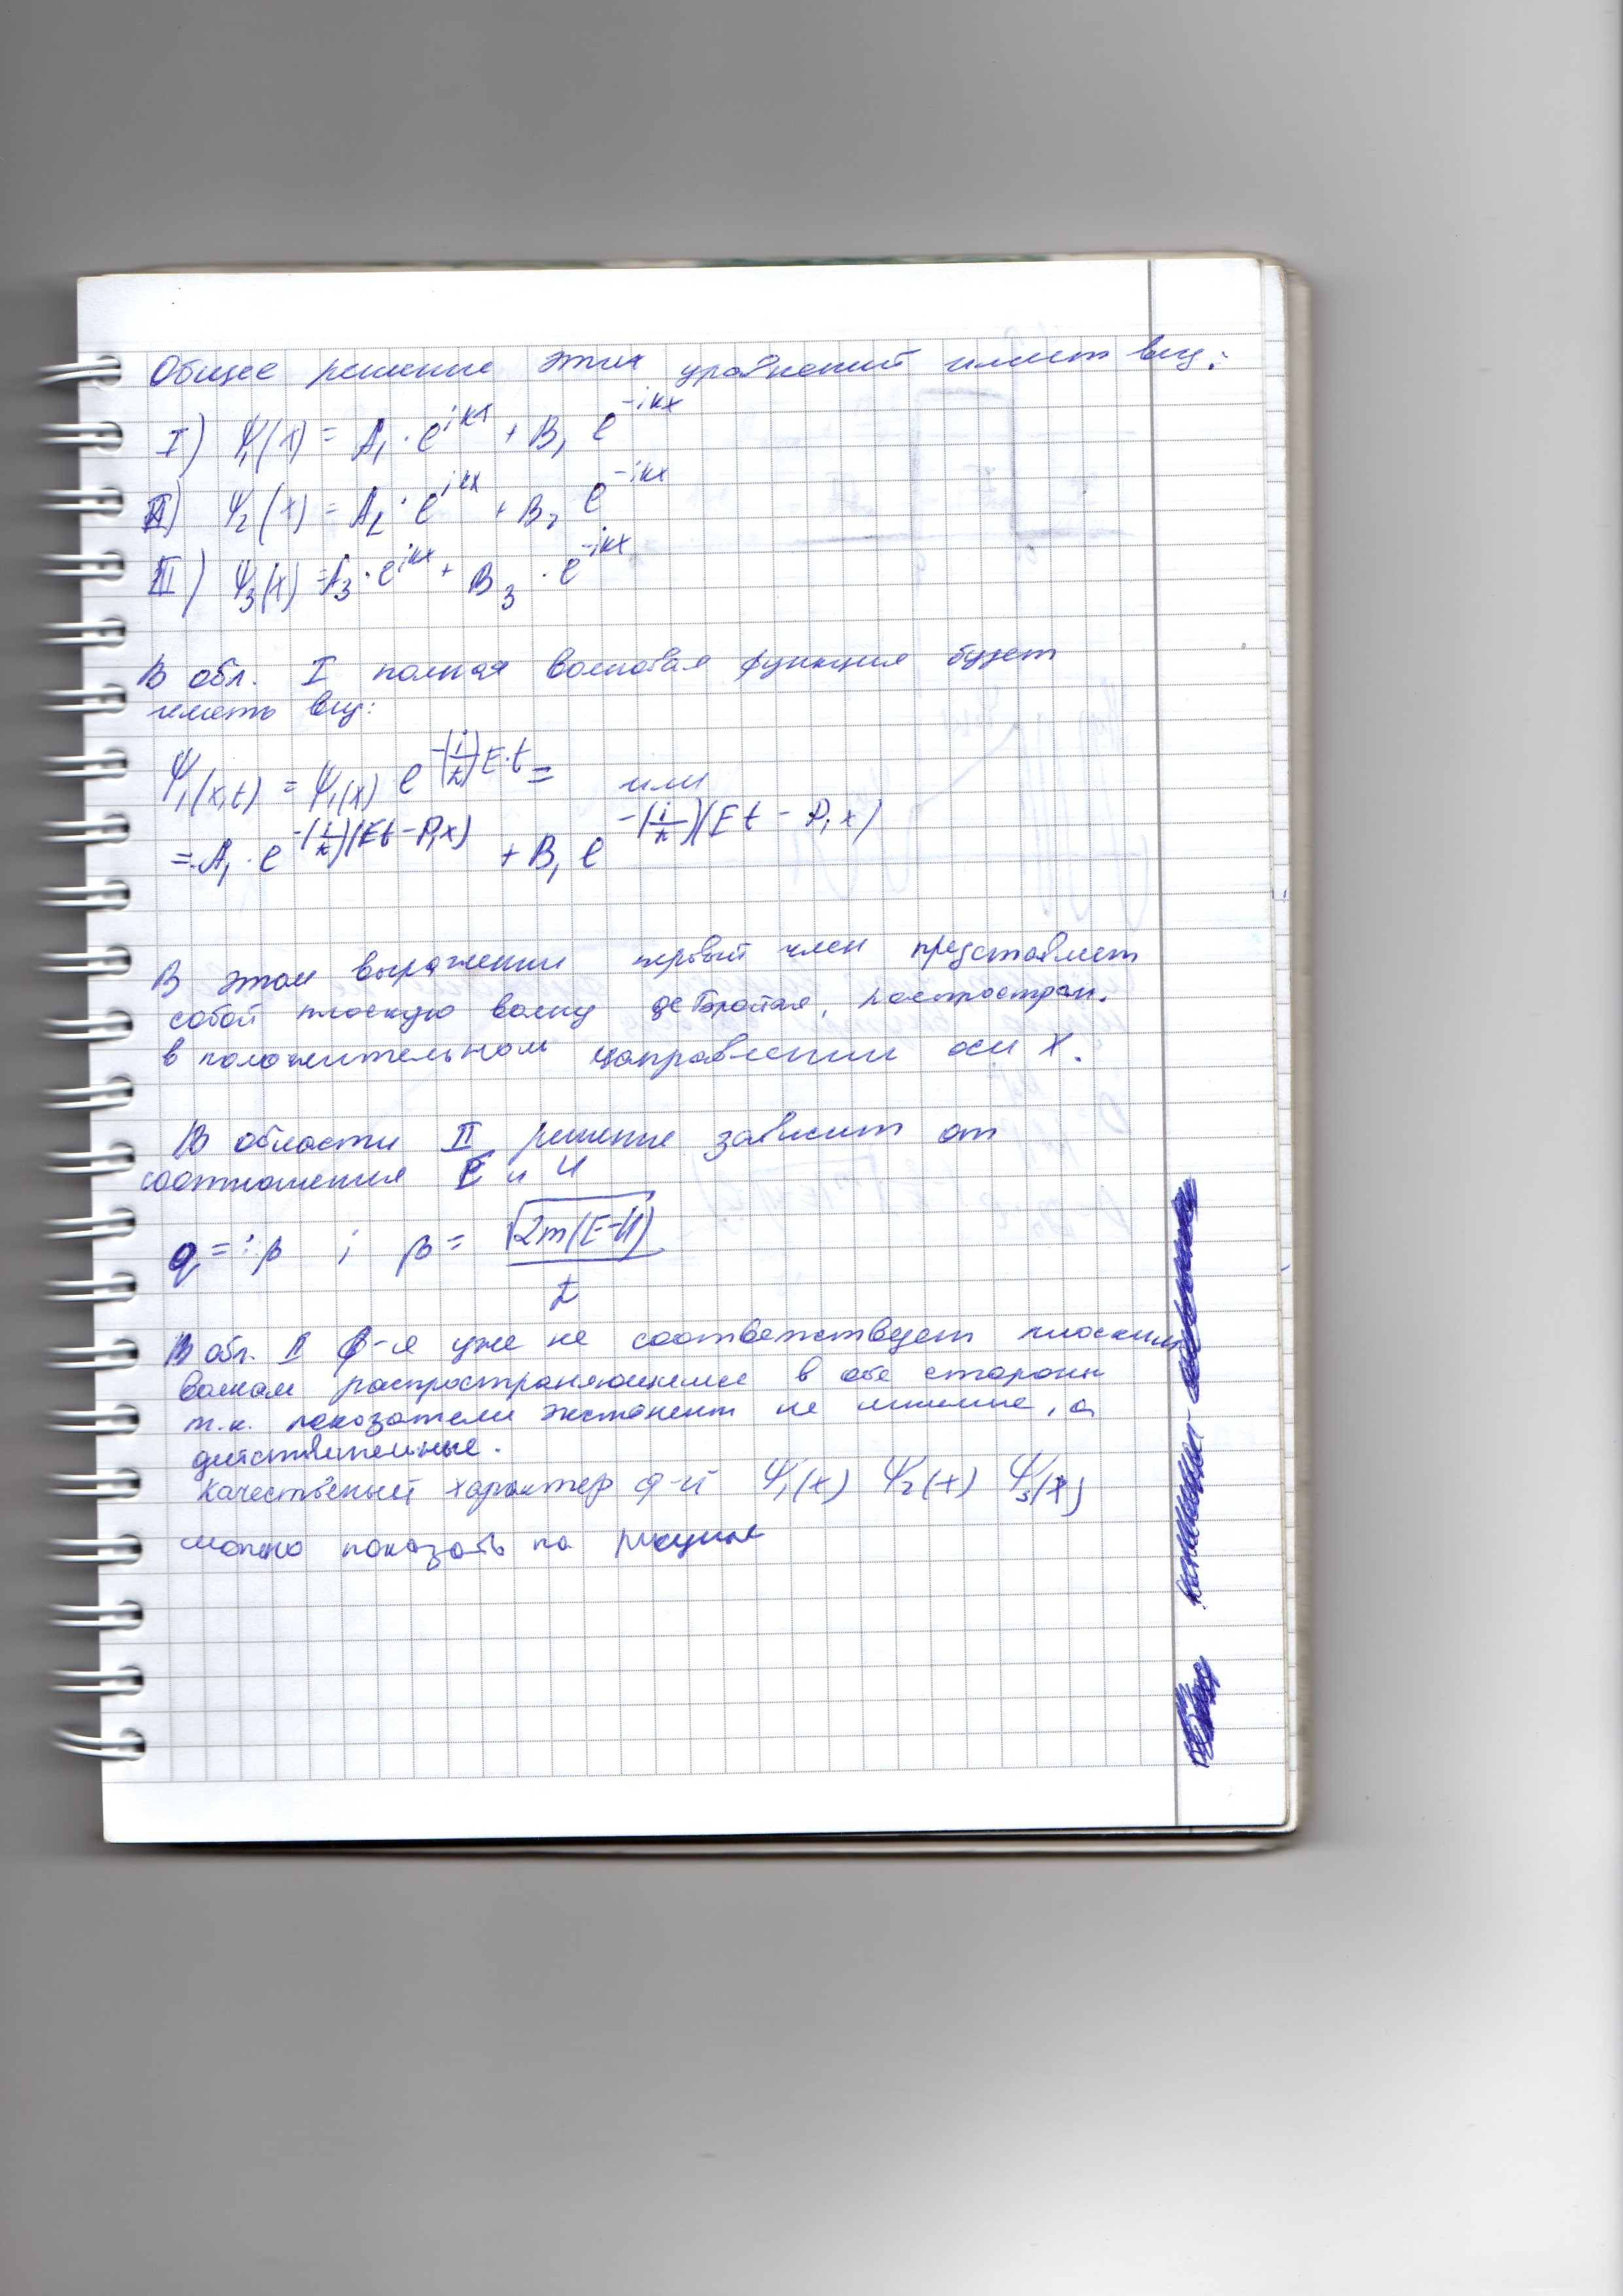 Общее решение этих уравнений имеет вид:
I) Ψ₁(x) = A₁ · e^{ikx} + B₁ e^{-ikx}
II) Ψ₂(x) = A₂ · e^{ikx} + B₂ e^{-ikx}
III) Ψ₃(x) = A₃ · e^{ikx} + B₃ · e^{-ikx}
В обл. I полная волновая функция будет
иметь вид:
Ψ₁(x,t) = Ψ₁(x) e^{-(i/ħ)E·t} = или
= A₁ · e^{-(i/ħ)(Et - P₁x)} + B₁ e^{-(i/ħ)(Et - P₁x)}
В этом выражении первый член представляет
собой плоскую волну де Бройля, распростран.
в положительном направлении оси X.
В области II решение зависит от
соотношения E и U
q = iβ ; β = √(2m(E-U)) / ħ
В обл. II ф-я уже не соответствует плоским
волнам распространяющимся в обе стороны
т.к. показатели экспонент не мнимые, а
действительные.
Качественный характер ф-й Ψ₁(x) Ψ₂(x) Ψ₃(x)
можно показать на рисунке